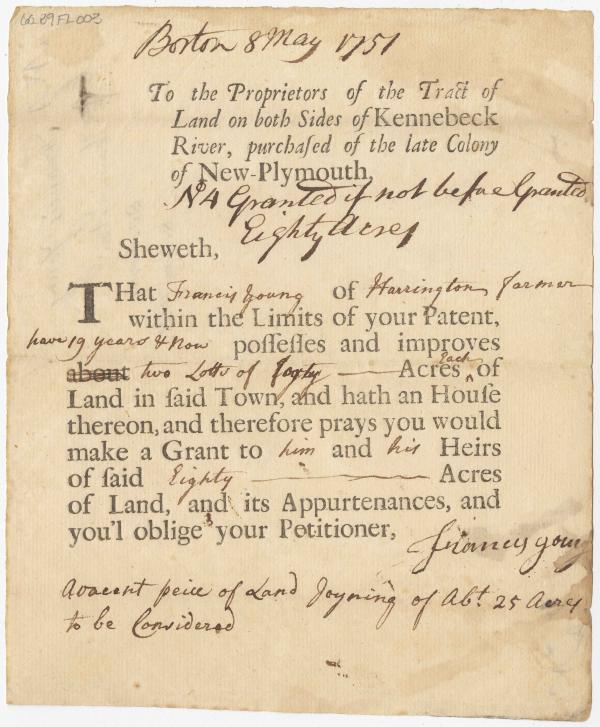 60.89FL003
Boston 8 May 1751
To the Proprietors of the Tract of
Land on both Sides of Kennebeck
River, purchaſed of the late Colony
of New-Plymouth,
No 4 Granted if not before Granted
Eighty Acres
Sheweth,
THat Francis Young of Harrington farmer
within the Limits of your Patent,
have 19 years & Now poſſeſſes and improves
about two Lotts of Forty Acres Each of
Land in ſaid Town, and hath an Houſe
thereon, and therefore prays you would
make a Grant to him and his Heirs
of ſaid Eighty Acres
of Land, and its Appurtenances, and
you'l oblige your Petitioner,
Francis young
Avacent peice of Land Joyning of Abt. 25 Acres
to be Considered